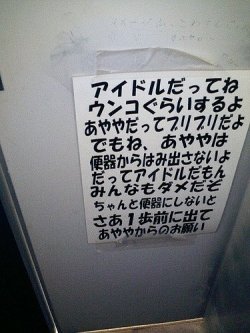 アイドルだってね
ウンコぐらいするよ
あややだってブリブリだよ
でもね、あややは
便器からはみ出さないよ
だってアイドルだもん
みんなもダメだぞ
ちゃんと便器にしないと
さあ1歩前に出て
あややからのお願い